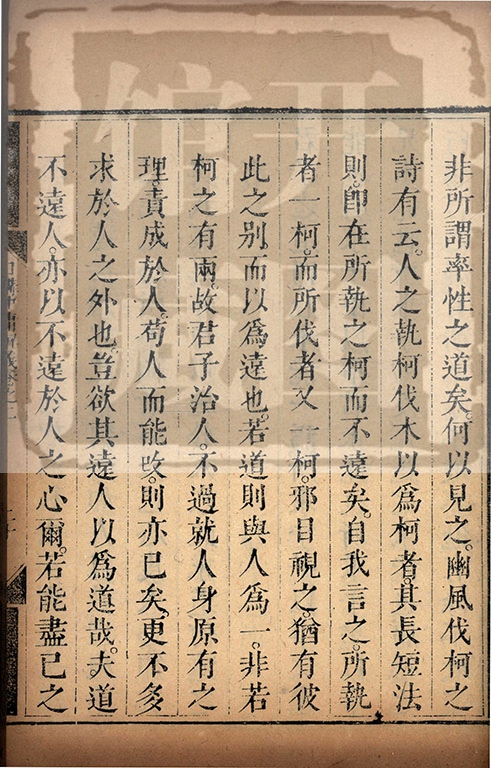 非所謂率性之道矣。何以見之。豳風伐柯之
詩有云。人之執柯伐木以爲柯者。其長短法
則。即在所執之柯而不遠矣。自我言之。所執
者一柯。而所伐者又一柯。邪目視之。猶有彼
此之別。而以爲遠也。若道則與人爲一。非若
柯之有兩。故君子治人。不過就人身原有之
理。責成於人。苟人而能改。則亦已矣。更不多
求於人之外也。豈欲其遠人以爲道哉。夫道
不遠人。亦以不遠於人之心爾。若能盡已之